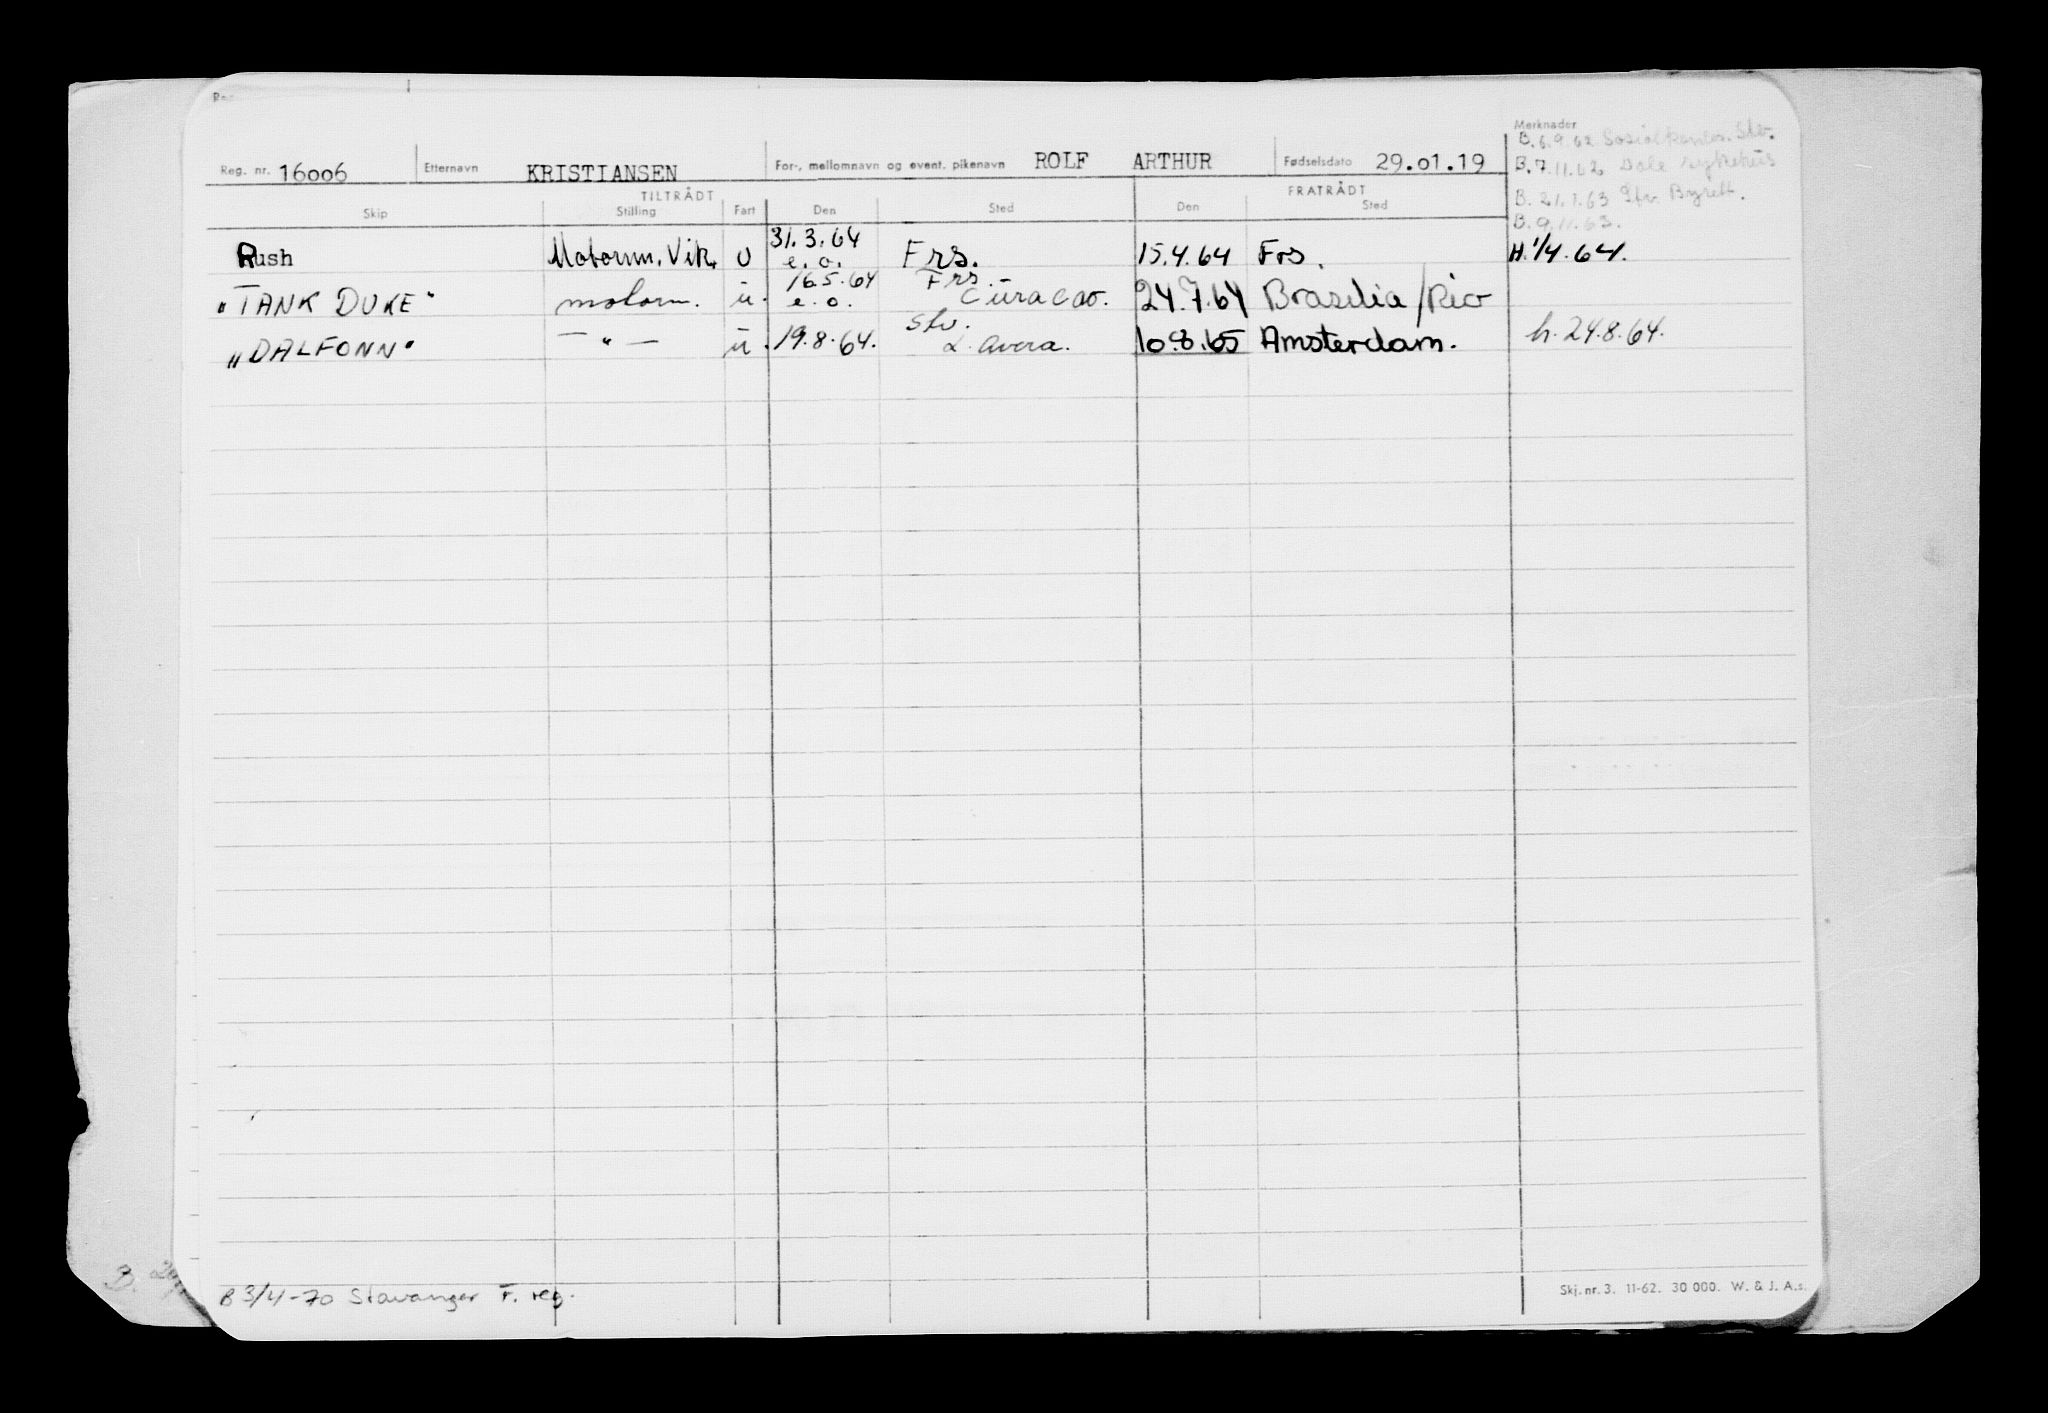 Reg. nr. 16006 Etternavn KRISTIANSEN For-, mellomnavn og event. pikenavn ROLF ARTHUR Fødselsdato 29.01.19 Merknader
B. 6.9.62 Sosialkontor. Stv.
B. 7.11.62 Dale sykehus
B. 21.1.63 Stv. Byrett.
B. 9.11.63.
TILTRÅDT FRATRÅDT
Skip Stilling Fart Den Sted Den Sted
Rush Motorm. Vik. U 31.3.64 e.o. Frs. 15.4.64 Frs. H. 1/4.64.
"TANK DUKE" motorm. u. 16.5.64 e.o. Frs. Curacao. 24.7.64 Brasilia/Rio
"DALFONN" — " — u. 19.8.64. Stv. L. Avera. 10.8.65 Amsterdam. h. 24.8.64.
B 3/4-70 Stavanger F. reg.
Skj. nr. 3. 11-62. 30 000. W. & J. A.s.
B.